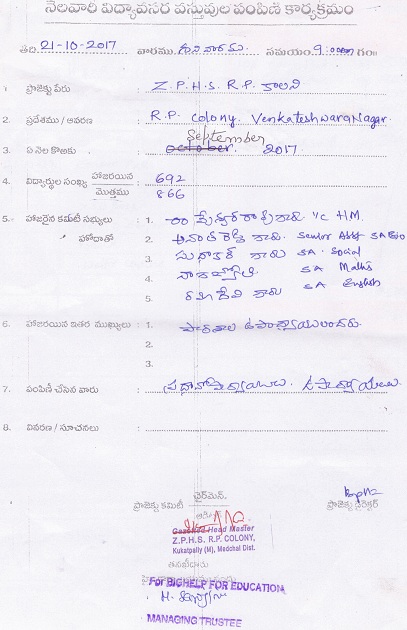 నెలవారి విద్యావసర వస్తువుల పంపిణీ కార్యక్రమం
తేది 21-10-2017 వారము శనివారము సమయం 9:00 గం॥
1. ప్రాజెక్టు పేరు : Z.P.H.S. R.P. కాలని
2. ప్రదేశము / ఆవరణ : R.P. Colony. Venkateshwara Nagar.
September
3. ఏ నెల కొఱకు : October. 2017.
4. విద్యార్థుల సంఖ్య హాజరయిన : 692
మొత్తము : 866
5. హాజరైన కమిటీ సభ్యులు : 1. గారు. I/c HM.
హోదాతో 2. గారు. Senior Asst SA
3. సుధాకర్ గారు SA. Social
4. SA Maths
5. రమాదేవి గారు SA English
6. హాజరయిన ఇతర ముఖ్యులు : 1. పాఠశాల ఉపాధ్యాయులందరు.
2.
3.
7. పంపిణీ చేసిన వారు : ప్రధానోపాధ్యాయులు. ఉపాధ్యాయులు.
8. వివరణ / సూచనలు :
ప్రాజెక్టు కమిటీ ఛైర్మెన్. ప్రాజెక్టు డైరెక్టర్
Gazetted Head Master
Z.P.H.S. R.P. COLONY,
Kukatpally (M), Medchal Dist.
For BIGHELP FOR EDUCATION
MANAGING TRUSTEE